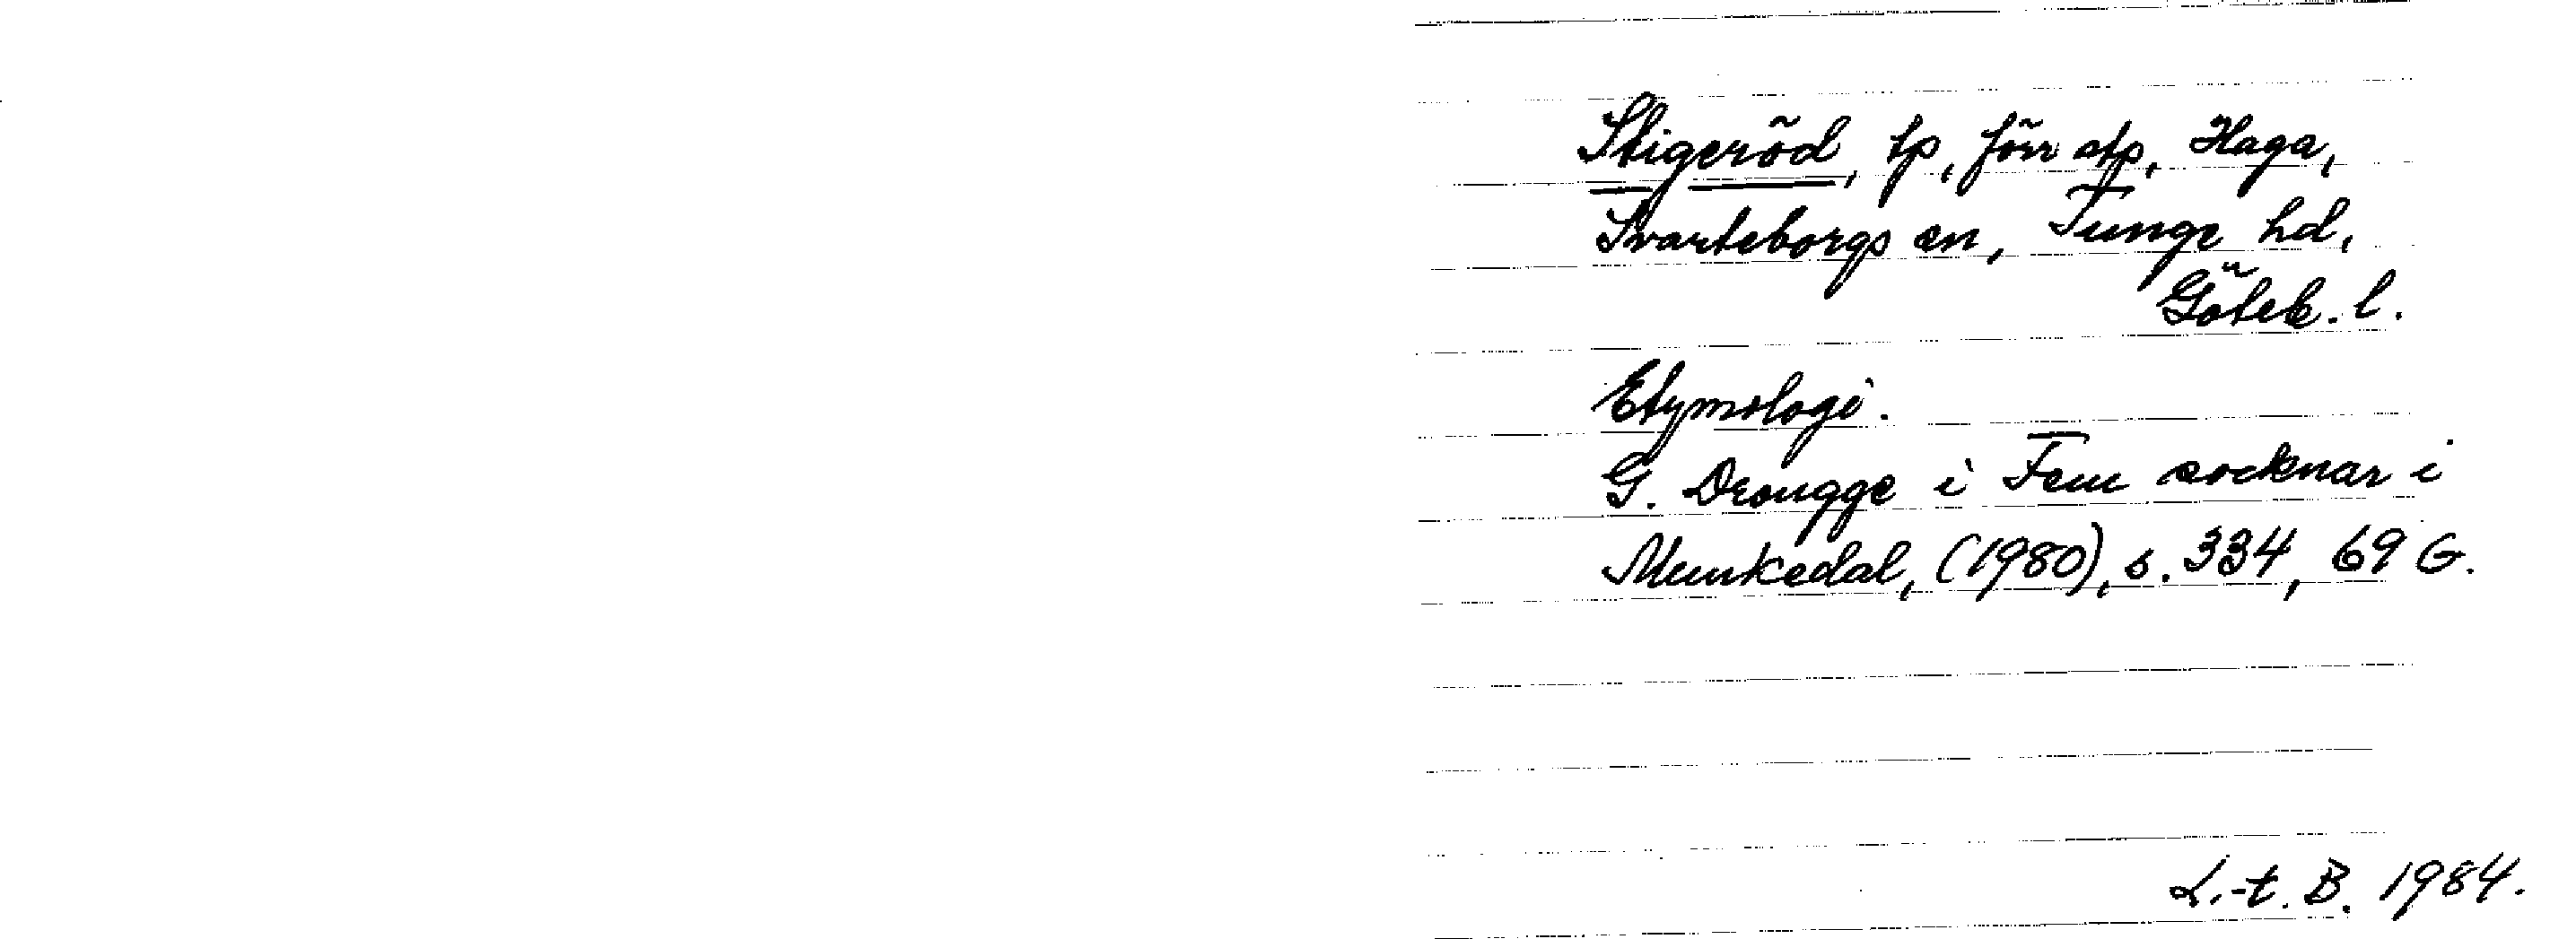 Stigeröd, tp, förr stp, Haga,
Svarteborgs sn, Tunge hd,
Göteb. l.
Etymologi.
G. Drougge i Fem socknar i
Munkedal, (1980), s. 334, 69 G.
L.-t. B. 1984.